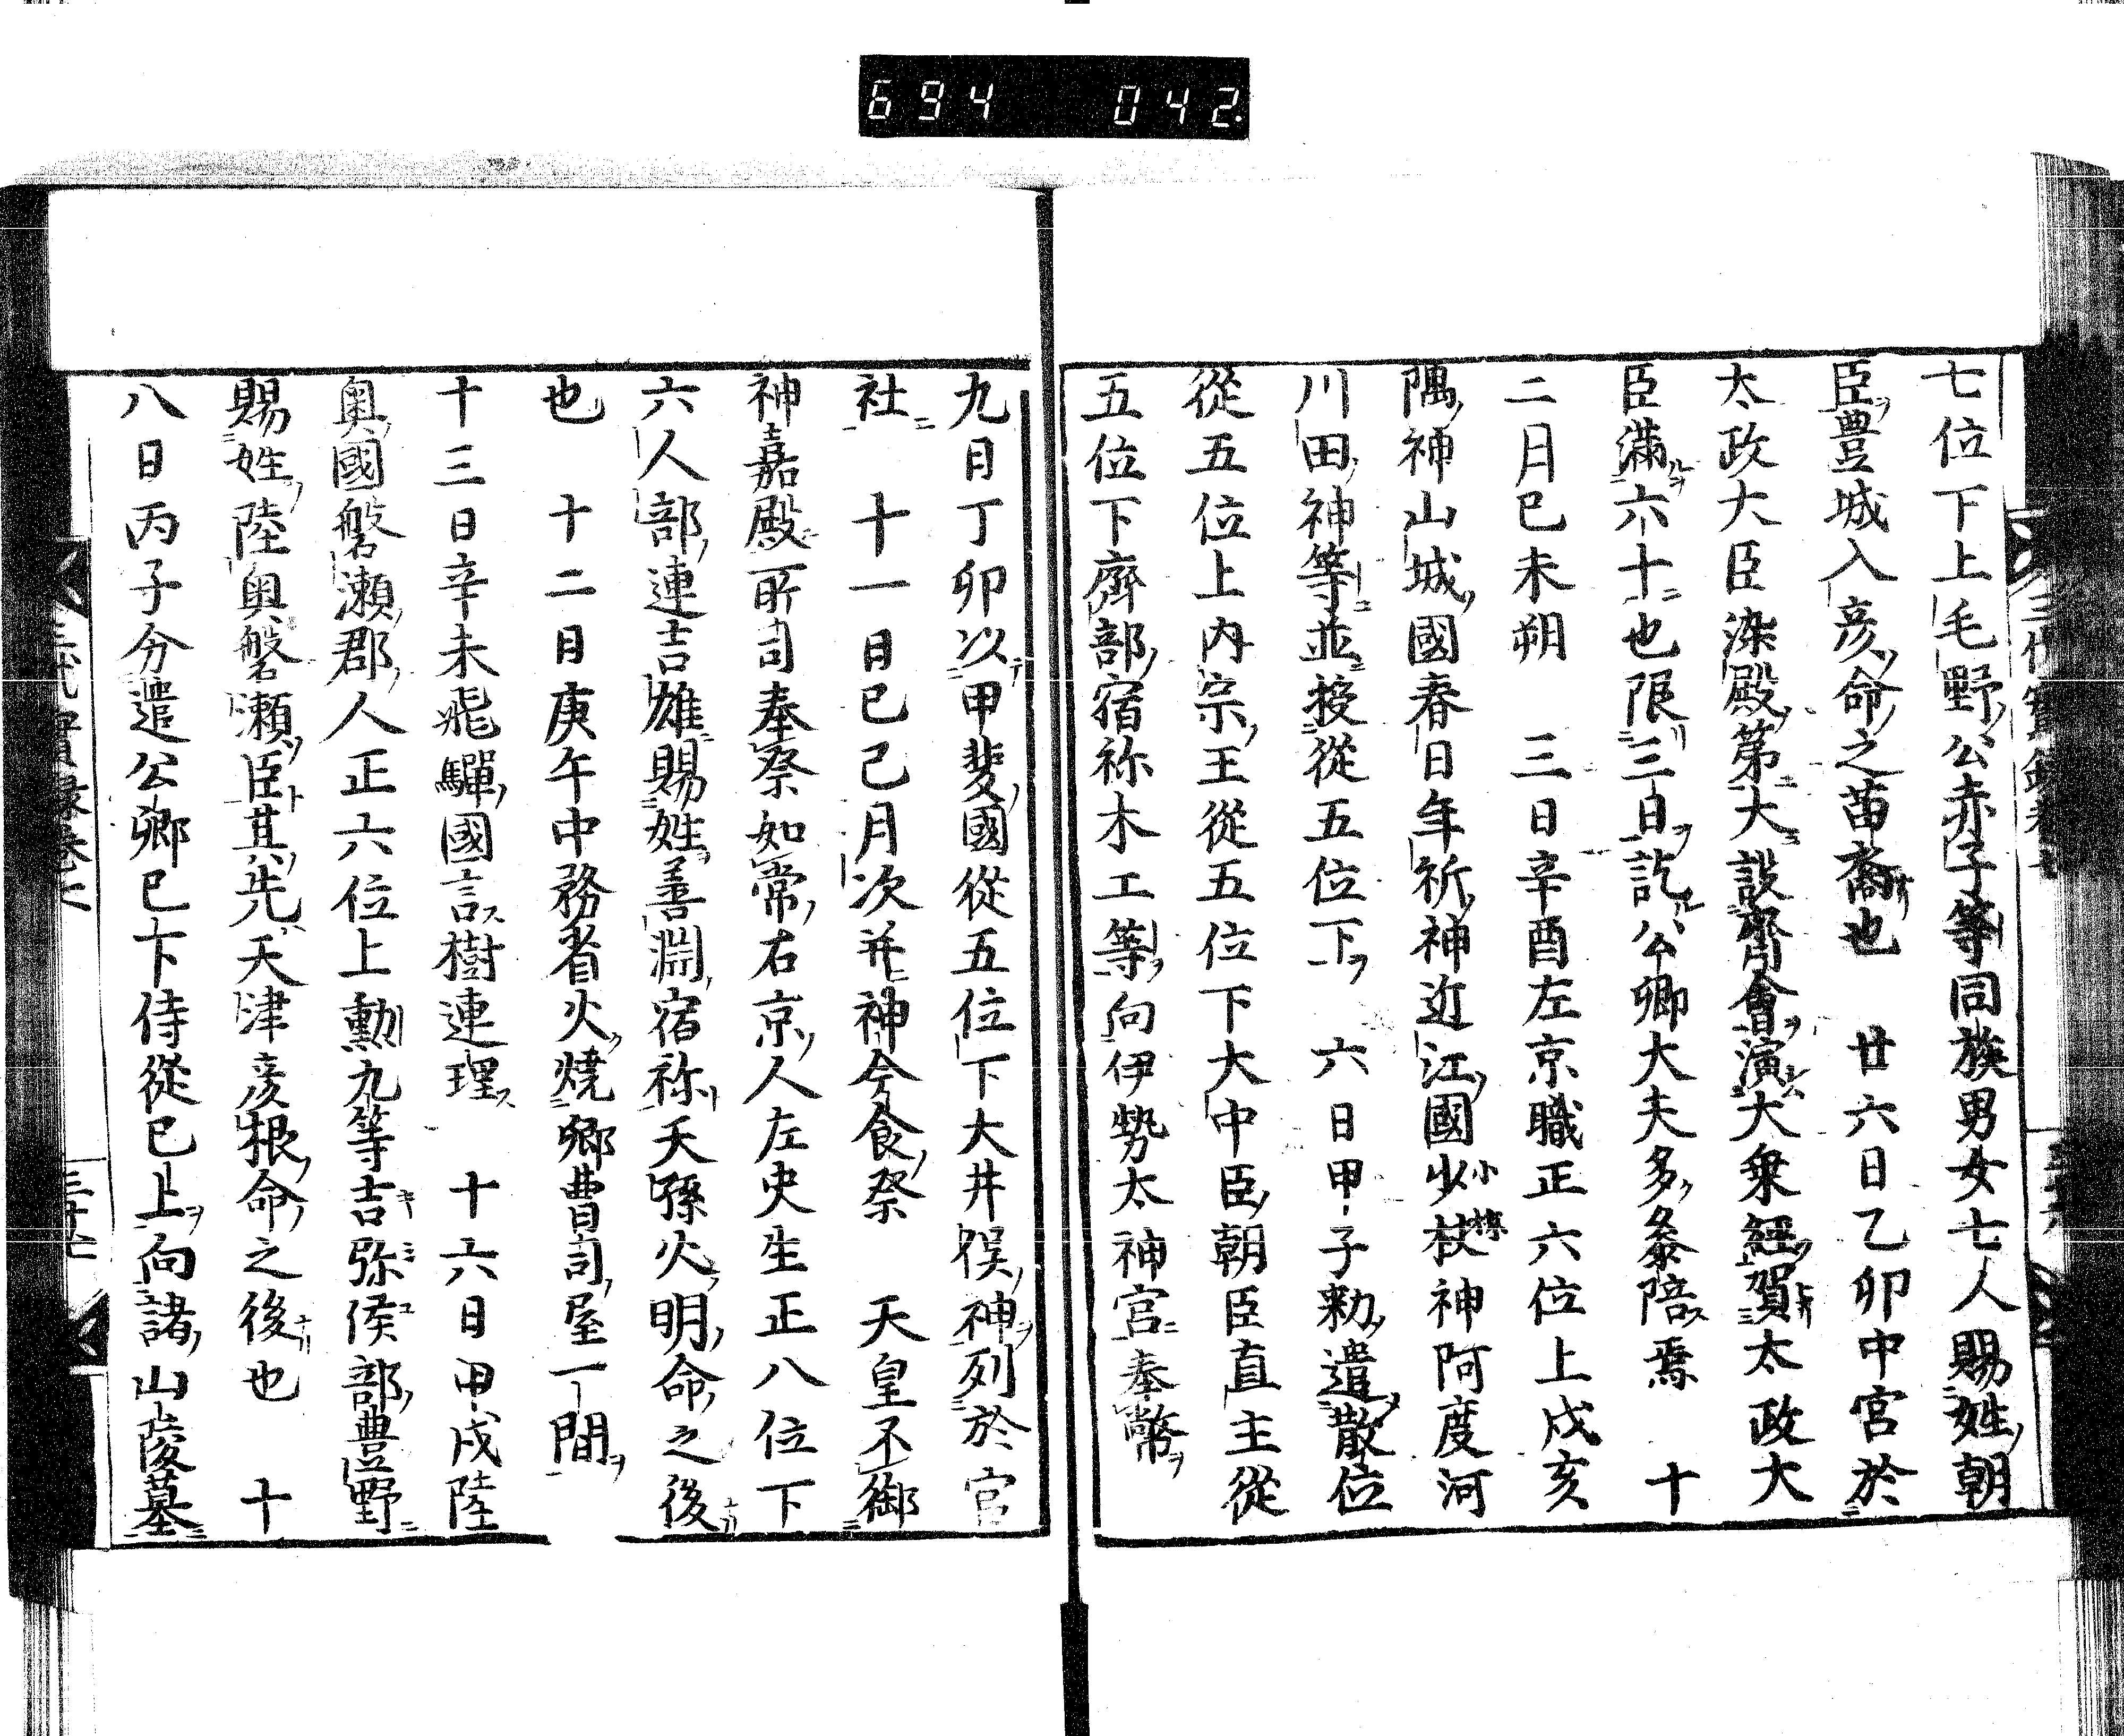 694 042
七位下上毛野公赤子等同族男女七人賜姓朝
臣豊城入彦命之苗裔也　廿六日乙卯中宮於
太政大臣染殿第大設齋會演大乗經賀太政大
臣滿六十也限三日訖公卿大夫多叅陪焉　十
二月巳未朔　三日辛酉左京職正六位上戌亥
隅神山城國春日年祈神近江國少杖神阿度河
川田神等並授從五位下　六日甲子勅遣散位
從五位上内宗王從五位下大中臣朝臣直主從
五位下齊部宿祢木工等向伊勢太神宮奉幣
九日丁卯以甲斐國從五位下大井俣神列於官
社　十一日巳己月次并神今食祭　天皇不御
神嘉殿所司奉祭如常右京人左史生正八位下
六人部連吉雄賜姓善淵宿祢天孫火明命之後
也　十二日庚午中務省火燒卿曹司屋一間
十三日辛未飛驒國言樹連理　十六日甲戌陸
奥國磐瀬郡人正六位上勳九等吉弥侯部豊野
賜姓陸奥磐瀬臣其先天津彦根命之後也　十
八日丙子分遣公卿已下侍從已上向諸山陵墓